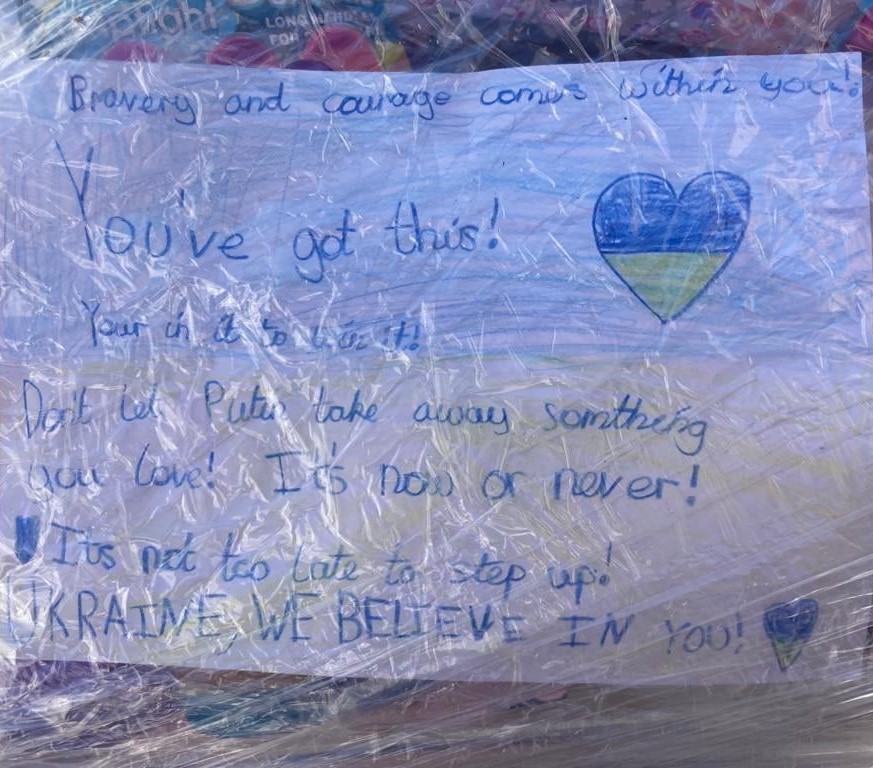 LONG
FOR
Bravery and courage comes within you!
You've got this!
Your in it to win it!
Don't let Putin take away somthing
you love! It's now or never!
Its not too late to step up!
UKRAINE, WE BELIEVE IN YOU!